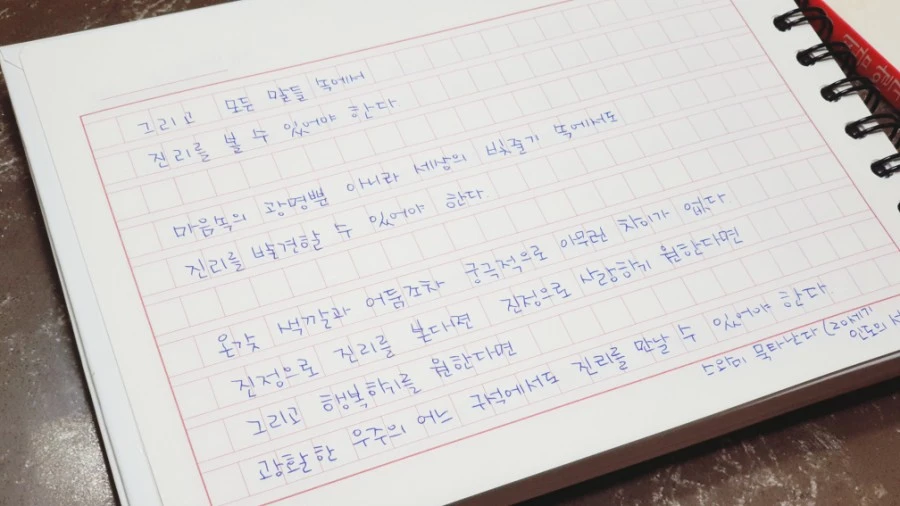 그리고 모든 말들 속에서
진리를 볼 수 있어야 한다
마음속의 광명뿐 아니라 세상의 빛줄기 속에서도
진리를 발견할 수 있어야 한다
온갖 색깔과 어둠조차 궁극적으로 아무런 차이가 없다
진정으로 진리를 본다면 진정으로 사랑하기 원한다면
그리고 행복하기를 원한다면
광활한 우주의 어느 구석에서도 진리를 만날 수 있어야 한다
스와미 묵타난다 (20세기
인도의